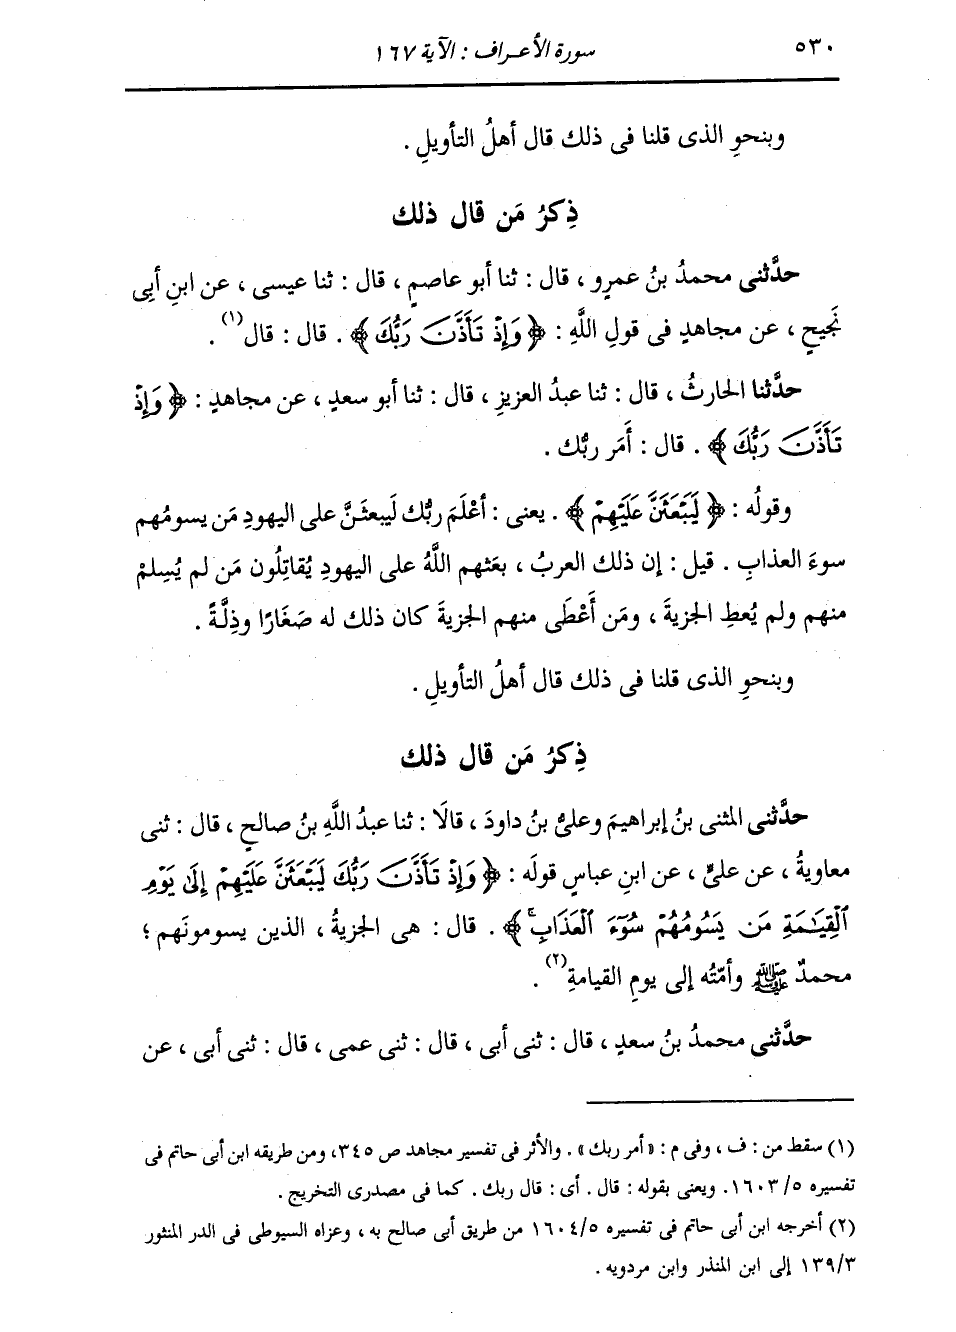 ٥٣٠ سورة الأعراف : الآية ١٦٧
وبنحوِ الذى قلنا فى ذلك قال أهلُ التأويلِ .
ذِكرُ مَن قال ذلك
حدَّثنى محمدُ بنُ عمرٍو ، قال : ثنا أبو عاصمٍ ، قال : ثنا عيسى ، عن ابنِ أبِى
نَجيحٍ ، عن مجاهدٍ فى قولِ اللَّهِ : ﴿ وَإِذْ تَأَذَّنَ رَبُّكَ ﴾ . قال : قال(١) .
حدَّثنا الحارثُ ، قال : ثنا عبدُ العزيزِ ، قال : ثنا أبو سعدٍ ، عن مجاهدٍ : ﴿ وَإِذْ
تَأَذَّنَ رَبُّكَ ﴾ . قال : أَمَر ربُّك .
وقولُه : ﴿ لَيَبْعَثَنَّ عَلَيْهِمْ ﴾ . يعنى : أعْلَمَ ربُّك لَيبعثَنَّ على اليهودِ مَن يسومُهم
سوءَ العذابِ . قيل : إن ذلك العربُ ، بعَثهم اللَّهُ على اليهودِ يُقاتِلُون مَن لم يُسِلمْ
منهم ولم يُعطِ الجزيةَ ، ومَن أَعْطَى منهم الجزيةَ كان ذلك له صَغَارًا وذِلَّةً .
وبنحوِ الذى قلنا فى ذلك قال أهلُ التأويلِ .
ذِكرُ مَن قال ذلك
حدَّثنى المثنى بنُ إبراهيمَ وعلىُّ بنُ داودَ ، قالَا : ثنا عبدُ اللَّهِ بنُ صالحٍ ، قال : ثنى
معاويةُ ، عن علىٍّ ، عن ابنِ عباسٍ قولَه : ﴿ وَإِذْ تَأَذَّنَ رَبُّكَ لَيَبْعَثَنَّ عَلَيْهِمْ إِلَىٰ يَوْمِ
ٱلْقِيَـٰمَةِ مَن يَسُومُهُمْ سُوٓءَ ٱلْعَذَابِۚ ﴾ . قال : هى الجزيةُ ، الذين يسومونَهم ؛
محمدٌ ﷺ وأمّتُه إلى يومِ القيامةِ(٢) .
حدَّثنى محمدُ بنُ سعدٍ ، قال : ثنى أبى ، قال : ثنى عمى ، قال : ثنى أبى ، عن
(١) سقط من : ف ، وفى م : « أمر ربك » . والأثر فى تفسير مجاهد ص ٣٤٥، ومن طريقه ابن أبى حاتم فى
تفسيره ١٦٠٣/٥. ويعنى بقوله : قال . أى : قال ربك . كما فى مصدرى التخريج .
(٢) أخرجه ابن أبى حاتم فى تفسيره ١٦٠٤/٥ من طريق أبى صالح به ، وعزاه السيوطى فى الدر المنثور
١٣٩/٣ إلى ابن المنذر وابن مردويه .